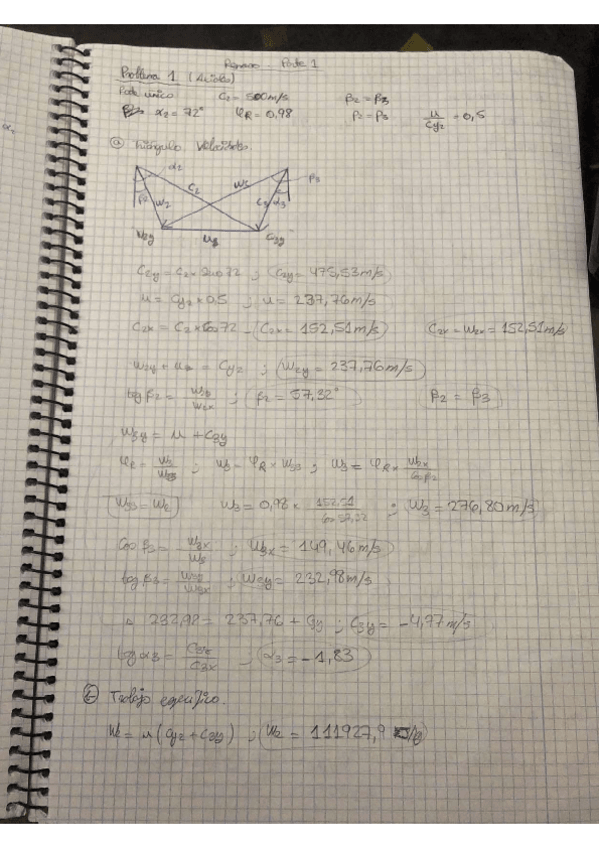 Repaso Parte 1
Problema 1 (Acción)
Dato único C2 = 500m/s β2 = β3
α2 = 72° φR = 0,98 P2 = P3 u/Cy2 = 0,5
a) Triángulo Velocidades.
α2
C2 W3 β3
β2 W2 C3 α3
W2y u C3y
C2y = C2 × sen72 ; C2y = 475,53m/s
u = Cy2 × 0,5 ; u = 237,76m/s
C2x = C2 × Cos72 - C2x = 152,51m/s C2x = W2x = 152,51m/s
W2y + u = Cy2 ; W2y = 237,76m/s
tog β2 = W2y/W2x ; β2 = 57,32° β2 = β3
W3y = u + C3y
φR = W3/W3s ; W3 = φR × W3s ; W3 = φR × W2x/Cosβ2
W3s = W2 W3 = 0,98 × 152,51/Cos57,32 ; W3 = 276,80m/s
Cos β3 = W3x/W3 ; W3x = 149,46m/s
tog β3 = W3y/W3x ; W3y = 232,98m/s
232,98 = 237,76 + C3y ; C3y = -4,77m/s
tog α3 = C3y/C3x ; α3 = -1,83
b) Trabajo específico.
W = u (Cy2 + C3y) ; W = 111927,9